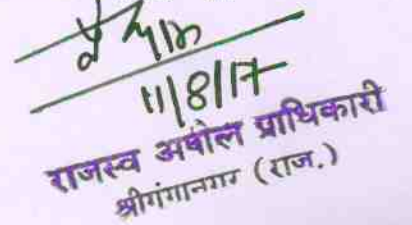 11/8/17
राजस्व अपील प्राधिकारी
श्रीगंगानगर (राज.)